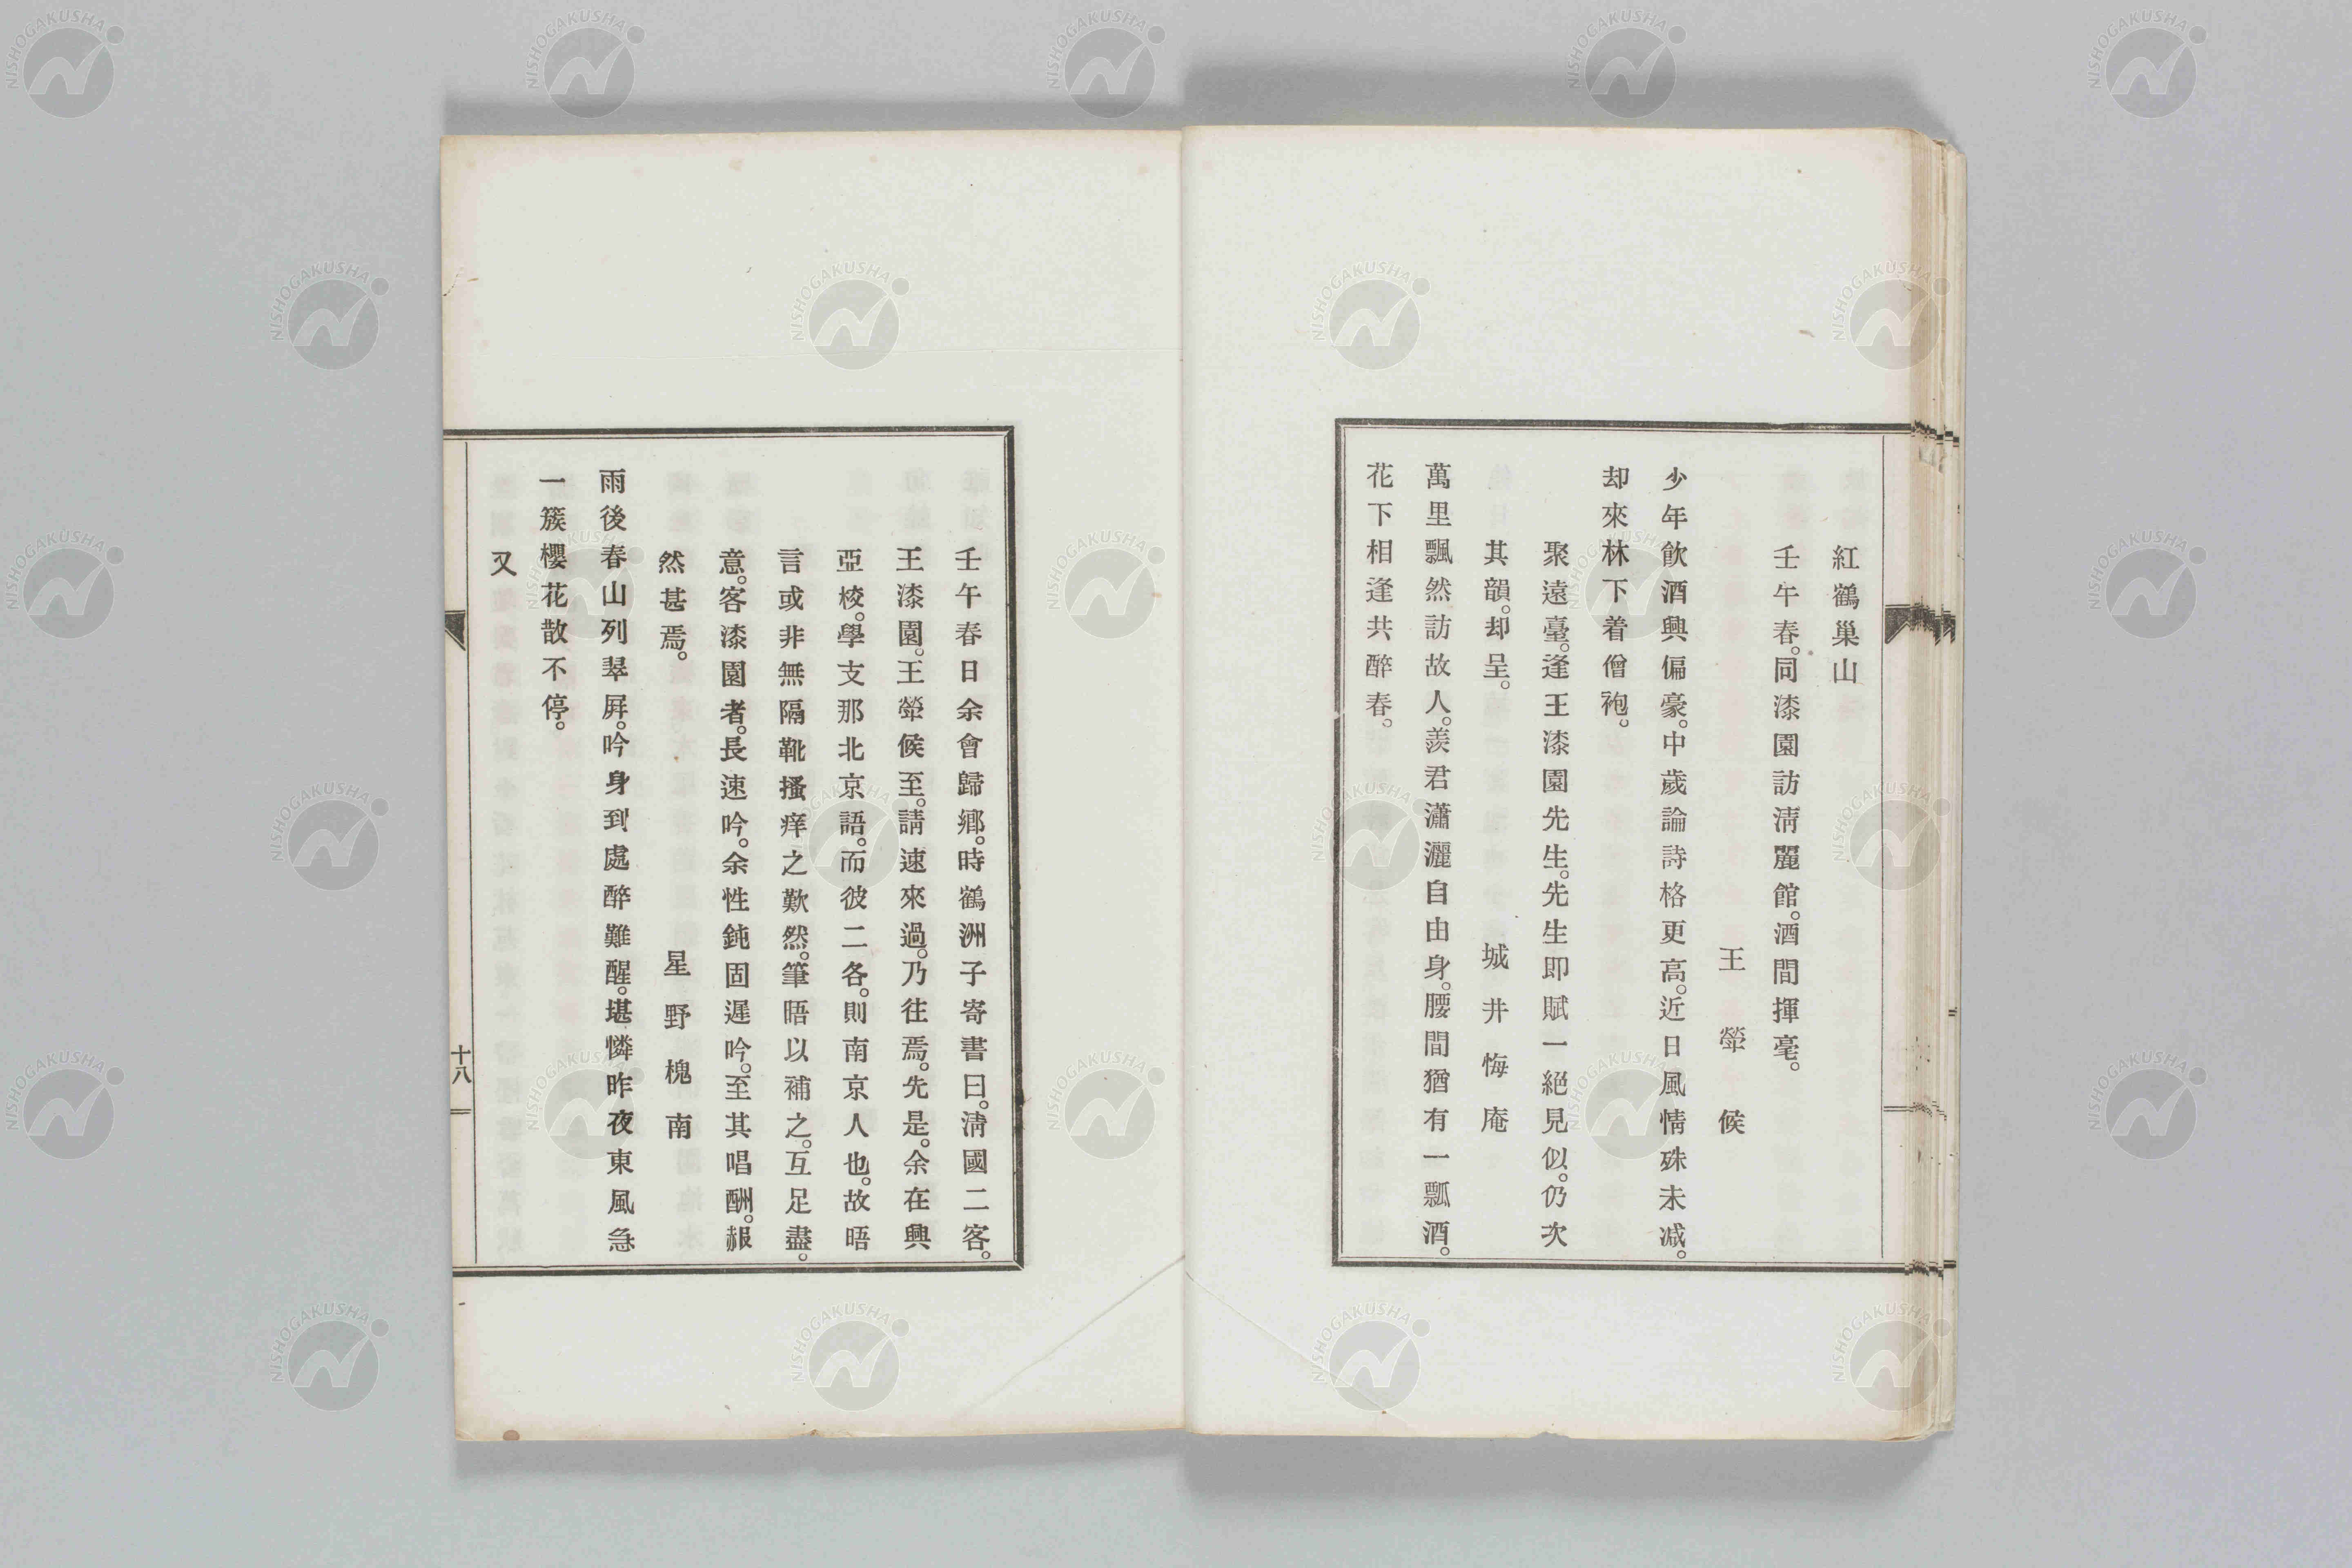 紅鶴巢山
壬午春。同漆園訪淸麗館。酒間揮毫。
王犖候
少年飮酒興偏豪。中歲論詩格更高。近日風情殊未减。
却來林下着僧袍。
聚遠臺。逢王漆園先生。先生即賦一絕見似。仍次
其韻。却呈。
城井悔庵
萬里飄然訪故人。羨君瀟灑自由身。腰間猶有一瓢酒。
花下相逢共醉春。
壬午春日余會歸鄉。時鶴洲子寄書曰。淸國二客。
王漆園。王犖候至。請速來過。乃往焉。先是。余在興
亞校。學支那北京語。而彼二各。則南京人也。故晤
言或非無隔靴搔痒之歎然。筆晤以補之。互足盡。
意。客漆園者。長速吟。余性鈍固遲吟。至其唱酬。赧
然甚焉。
星野槐南
雨後春山列翠屛。吟身到處醉難醒。堪憐昨夜東風急
一簇櫻花散不停。
又
十八
NISHOGAKUSHA